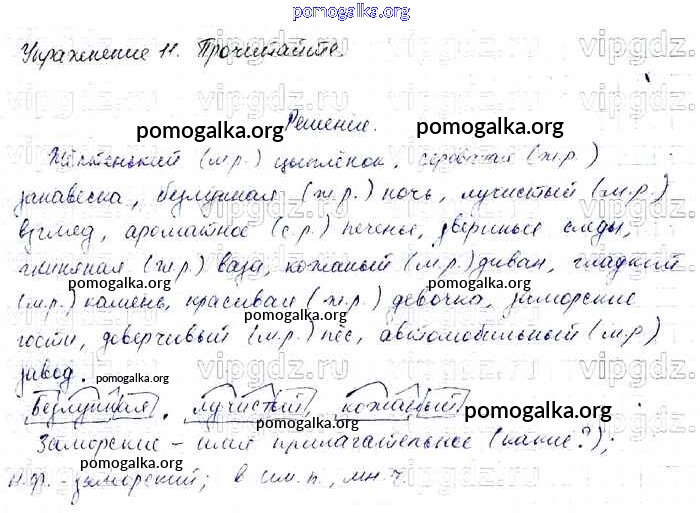 pomogalka.org
Упражнение 11. Прочитайте.
Решение.
Жёлтенький (м.р.) цыплёнок, сероватая (ж.р.)
занавеска, безлунная (ж.р.) ночь, лучистый (м.р.)
взгляд, ароматное (с.р.) печенье, звериные следы,
глиняная (ж.р.) ваза, кожаный (м.р.) диван, гладкий
(м.р.) камень, красивая (ж.р.) девочка, заморские
гости, доверчивый (м.р.) пёс, автомобильный (м.р)
завод.
Безлунная, лучистый, кожаный.
Заморские – имя прилагательное (какие?);
н.ф. – заморский; в им.п., мн.ч.